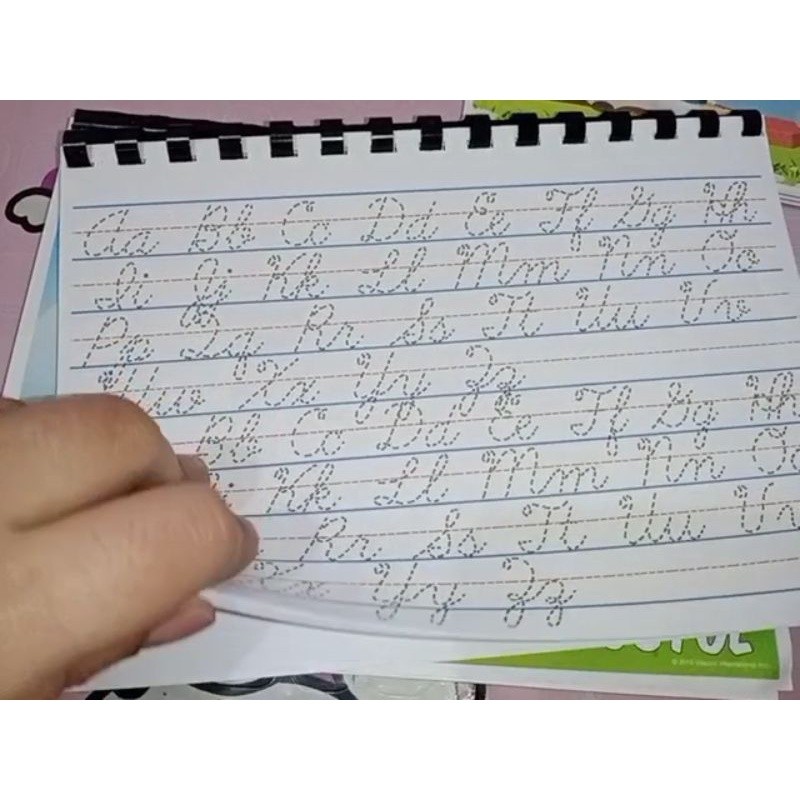 Aa Bb Cc Dd Ee Ff Gg Hh
Ii Jj Kk Ll Mm Nn Oo
Pp Qq Rr Ss Tt Uu Vv
Ww Xx Yy Zz
Bb Cc Dd Ee Ff Gg Hh
Kk Ll Mm Nn
Rr Ss Tt Uu Vv
Yy Zz